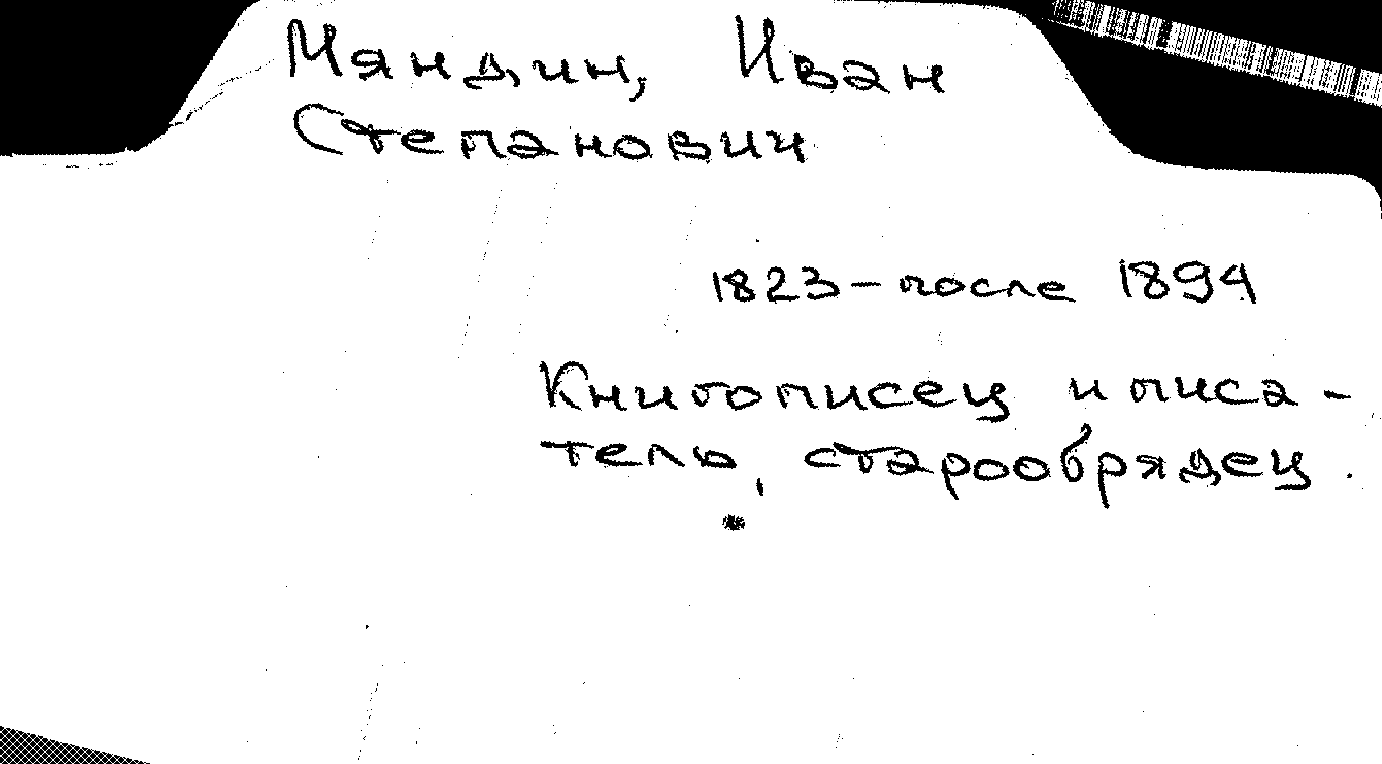 Мяндин, Иван
Степанович
1823 – после 1894
Книгописец и писа-
тель, старообрядец.